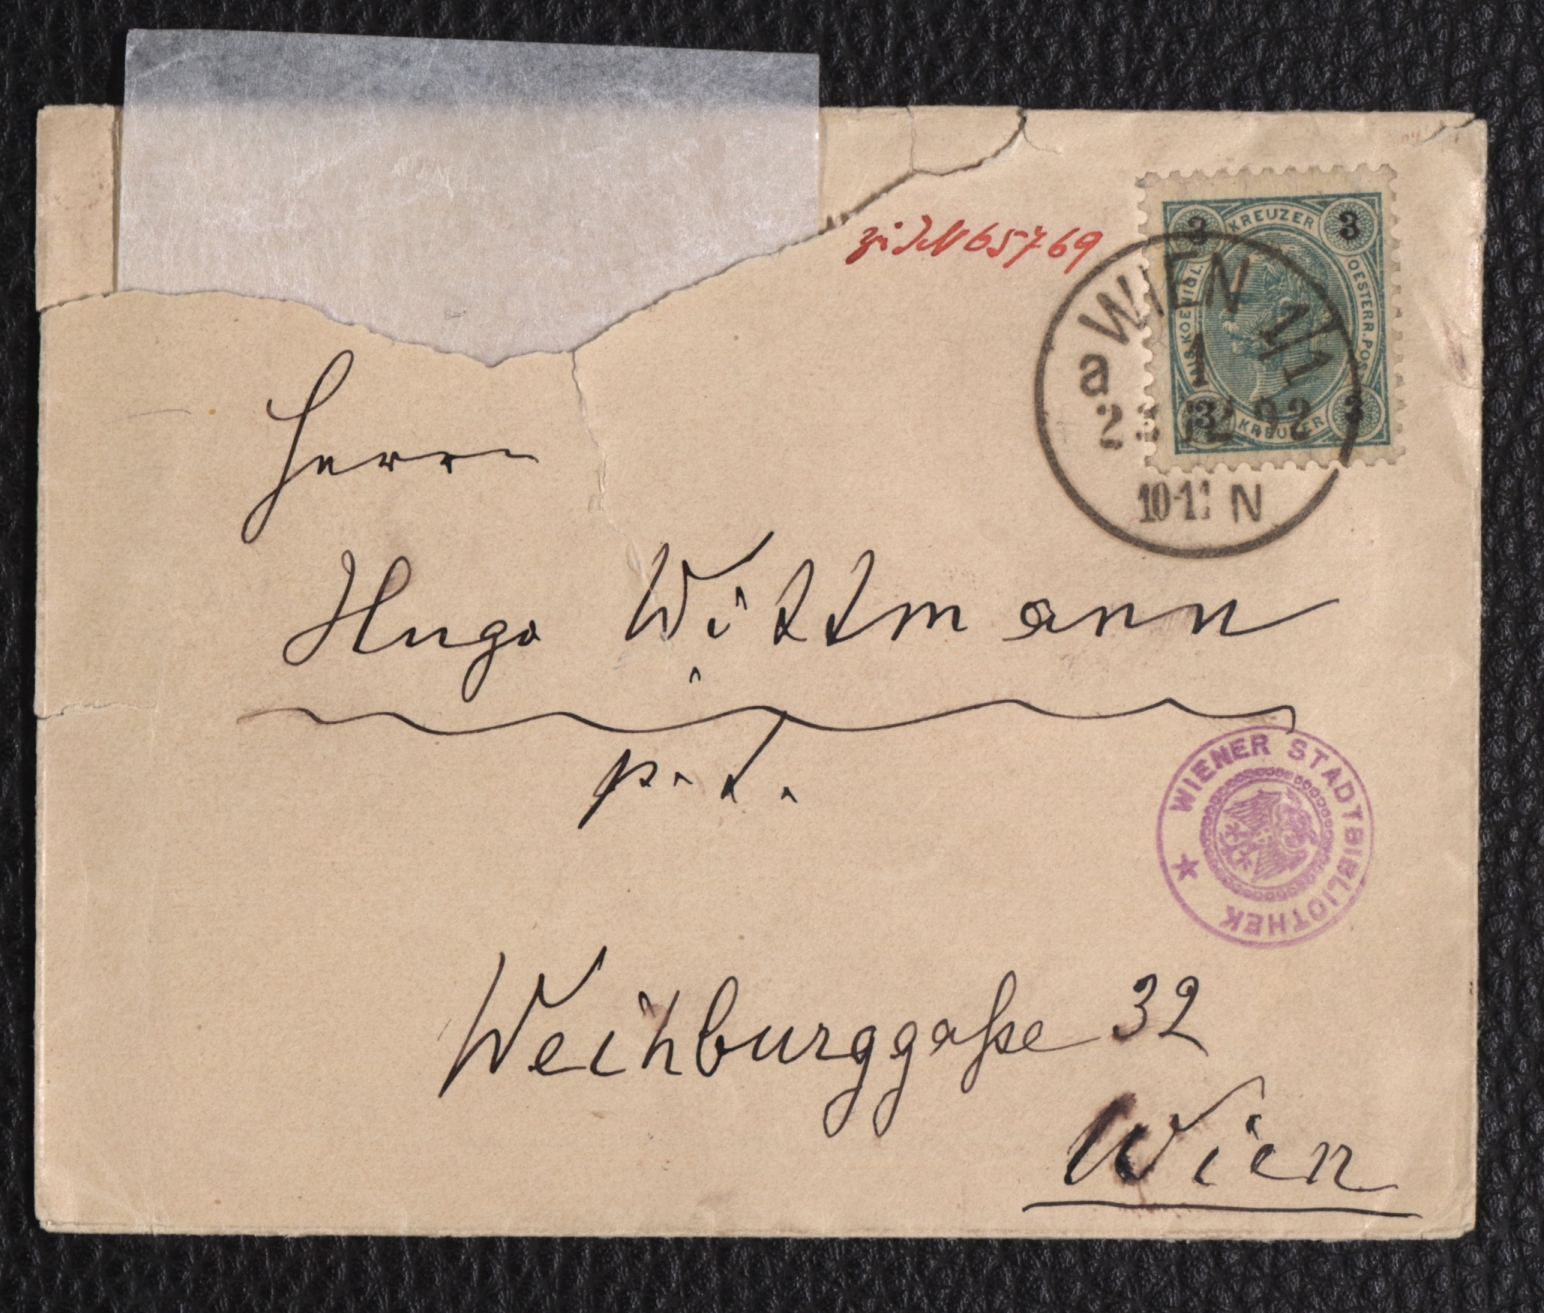 zu IN 65769
3 KREUZER 3
KAIS. KOENIGL.
OESTERR. POST
3 KREUZER 3
WIEN 1/1
a 1
12 92
10-11 N
Herrn
Hugo Wittmann
p. t.
WIENER STADTBIBLIOTHEK
Weihburggaße 32
Wien